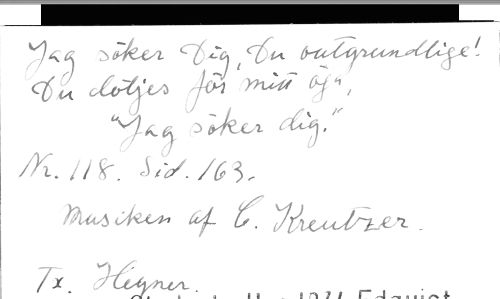 Jag söker Dig, Du outgrundlige!
Du döljes för mitt öga,
"Jag söker dig."
Nr. 118. Sid. 163.
Musiken af C. Kreutzer.
Tx. Heyner.
1931 Edqvist